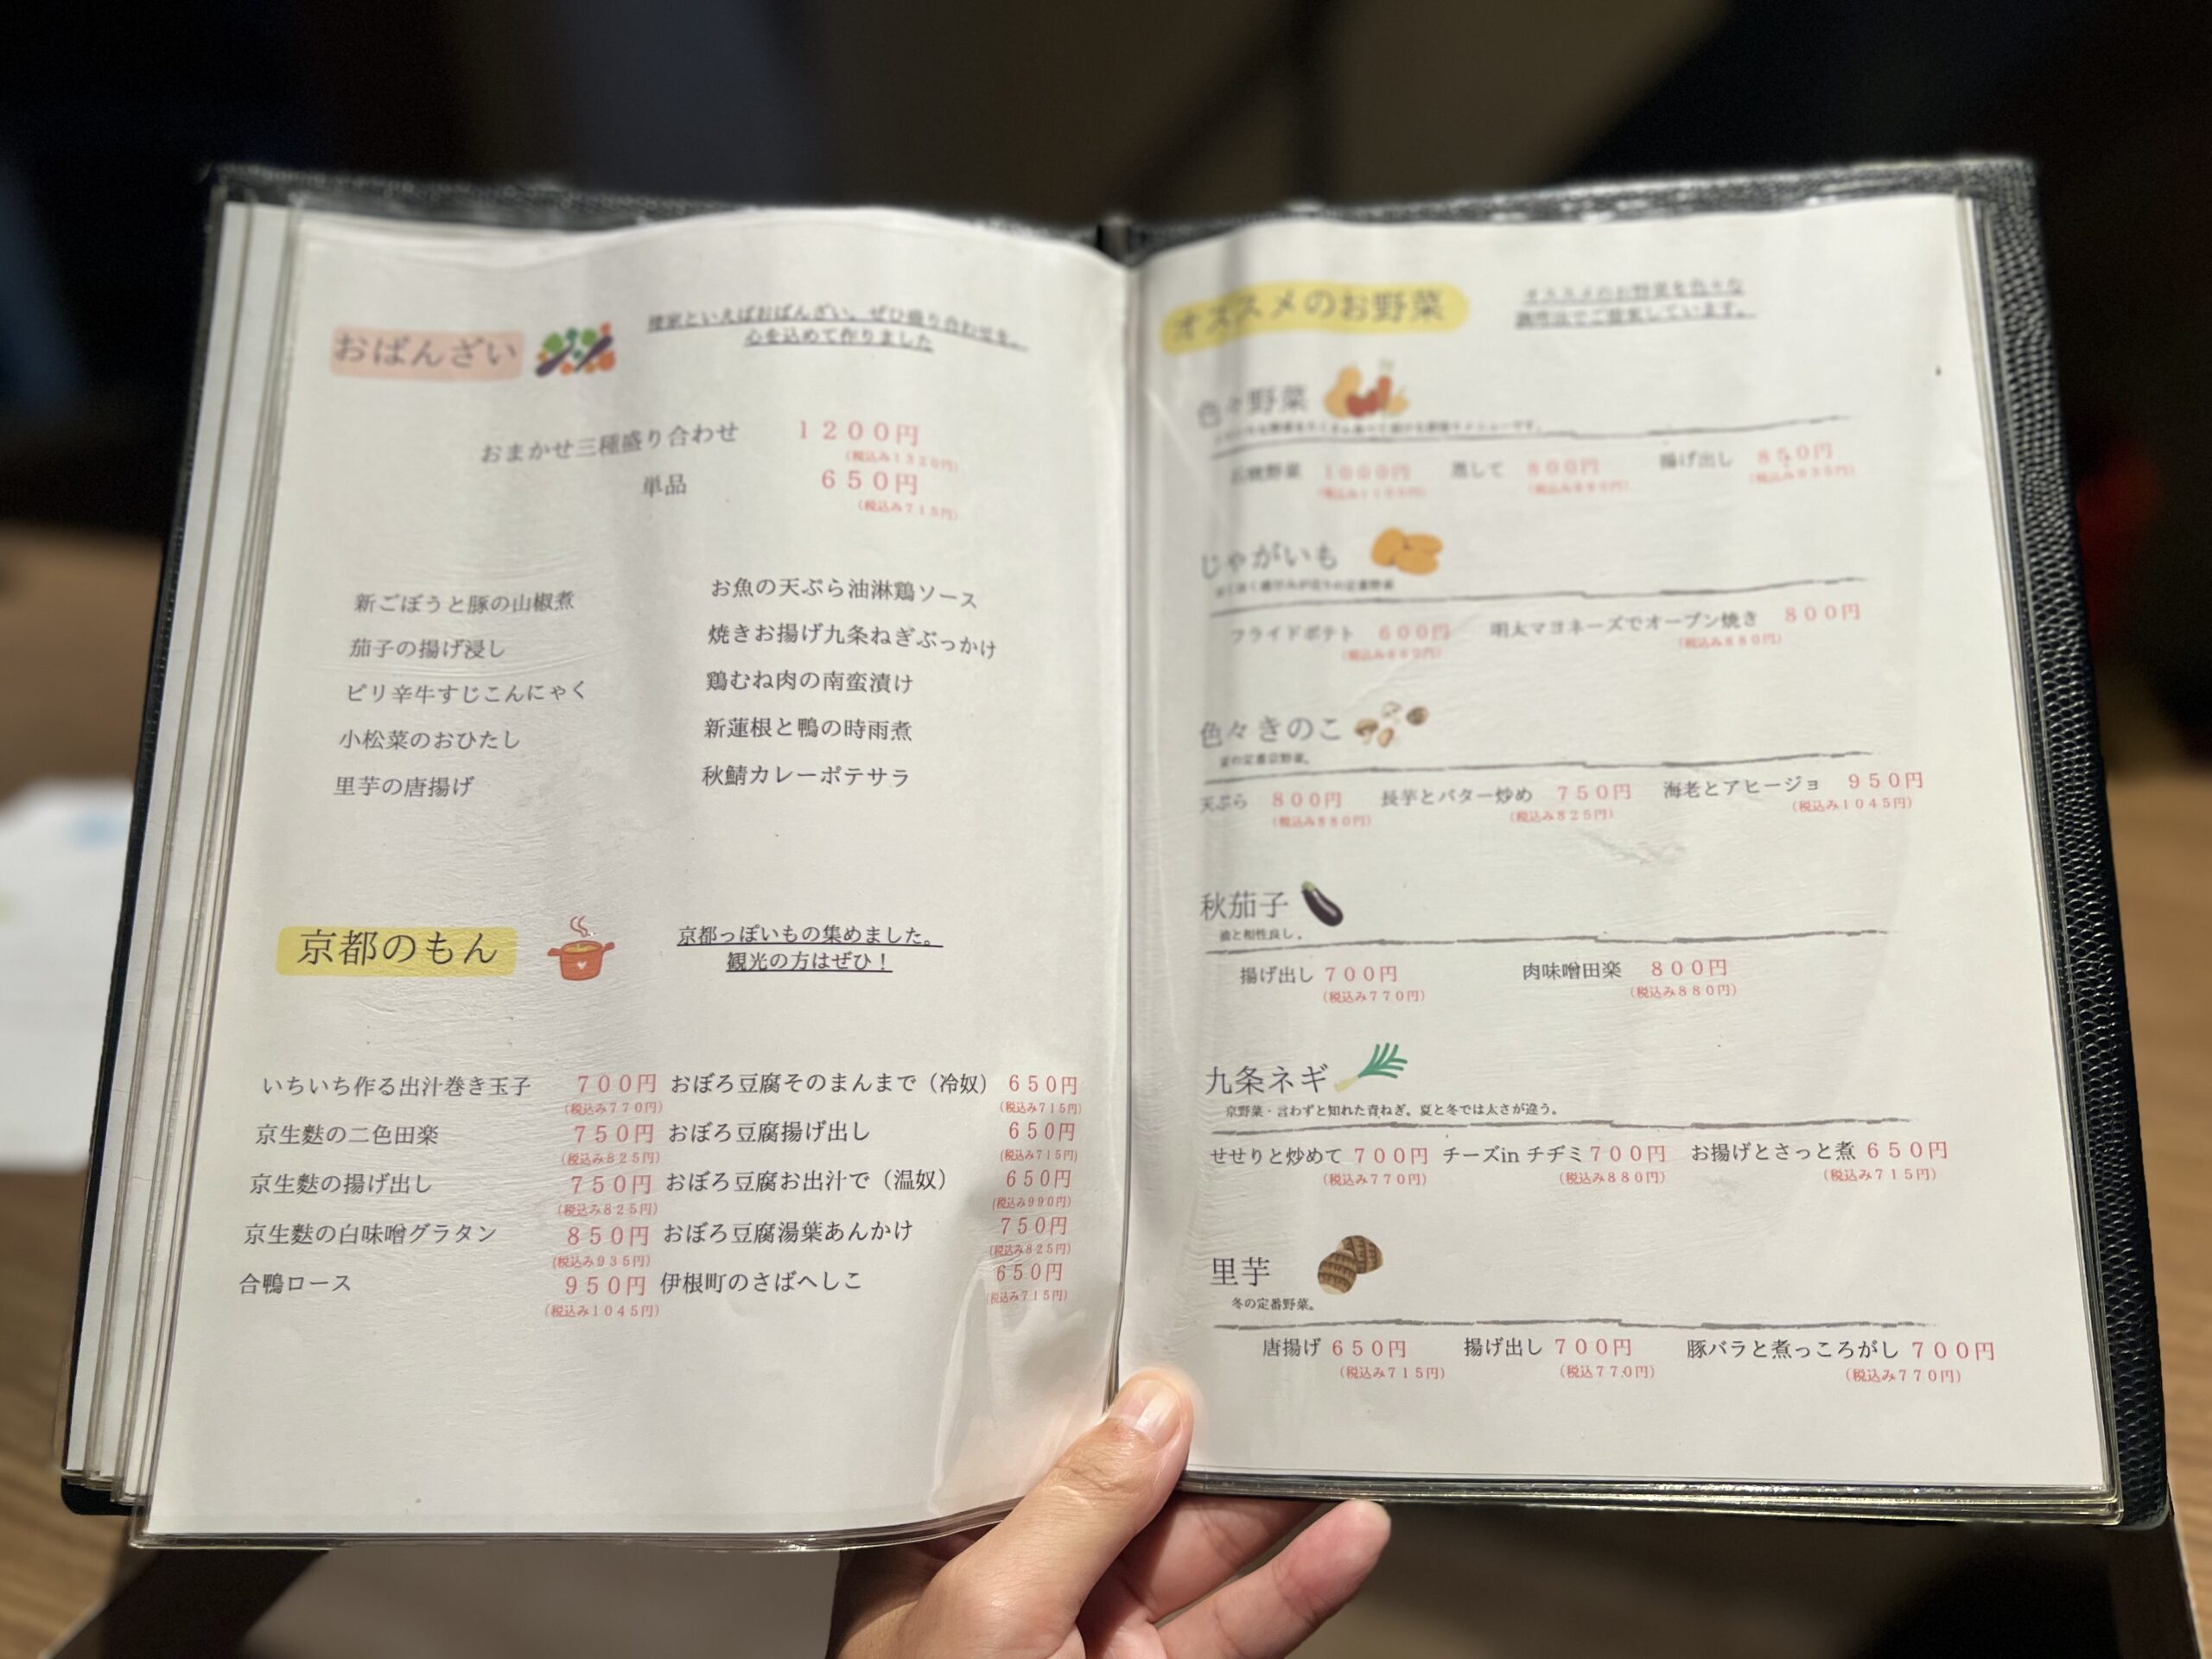 おばんざい
といえばおばんざい。ぜひ盛り合わせを。
心を込めて作りました
おまかせ三種盛り合わせ １２００円
（税込み１３２０円）
単品 ６５０円
（税込み７１５円）
新ごぼうと豚の山椒煮
茄子の揚げ浸し
ピリ辛牛すじこんにゃく
小松菜のおひたし
里芋の唐揚げ
お魚の天ぷら油淋鶏ソース
焼きお揚げ九条ねぎぶっかけ
鶏むね肉の南蛮漬け
新蓮根と鴨の時雨煮
秋鯖カレーポテサラ
京都のもん
京都っぽいもの集めました。
観光の方はぜひ！
いちいち作る出汁巻き玉子 ７００円
（税込み７７０円）
京生麩の二色田楽 ７５０円
（税込み８２５円）
京生麩の揚げ出し ７５０円
（税込み８２５円）
京生麩の白味噌グラタン ８５０円
（税込み９３５円）
合鴨ロース ９５０円
（税込み１０４５円）
おぼろ豆腐そのまんまで（冷奴） ６５０円
（税込み７１５円）
おぼろ豆腐揚げ出し ６５０円
（税込み７１５円）
おぼろ豆腐お出汁で（温奴） ６５０円
（税込み９９０円）
おぼろ豆腐湯葉あんかけ ７５０円
（税込み８２５円）
伊根町のさばへしこ ６５０円
（税込み７１５円）
オススメのお野菜
オススメのお野菜を色々な
調理法でご提案しています。
色々野菜
野菜 １０００円 蒸して ８００円 揚げ出し ８５０円
（税込み１１００円） （税込み８８０円） （税込み９３５円）
じゃがいも
フライドポテト ６００円 明太マヨネーズでオーブン焼き ８００円
（税込み６６０円） （税込み８８０円）
色々きのこ
夏の定番京野菜。
天ぷら ８００円 長芋とバター炒め ７５０円 海老とアヒージョ ９５０円
（税込み８８０円） （税込み８２５円） （税込み１０４５円）
秋茄子
油と相性良し。
揚げ出し ７００円 肉味噌田楽 ８００円
（税込み７７０円） （税込み８８０円）
九条ネギ
京野菜・言わずと知れた青ねぎ。夏と冬では太さが違う。
せせりと炒めて ７００円 チーズin チヂミ ７００円 お揚げとさっと煮 ６５０円
（税込み７７０円） （税込み８８０円） （税込み７１５円）
里芋
冬の定番野菜。
唐揚げ ６５０円 揚げ出し ７００円 豚バラと煮っころがし ７００円
（税込み７１５円） （税込７７０円） （税込み７７０円）